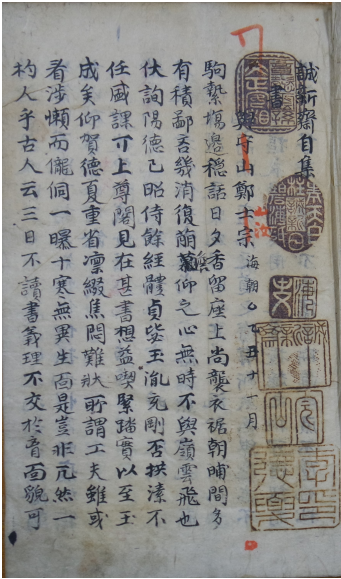 誠新齋自集
書
與守山鄭士宗 海朝 乙丑十一月
駒繫塲邊穩話日夕香留座上尚襲衣裾朝晡間多
有積鄙吾幾消復萠仰之心無時不與嶺雲飛也
伏詢陽德已昭侍餘經體貞毖玉胤充剛否拱溱不
任課上聞見在甚書想益喫緊踏實以至玉
成矣仰賀德夏重省凜綴焦悶難狀所謂工夫雖或
看涉懶而儱侗一曝十寒無異生面是豈非兀然一
杓人乎古人云三日不讀書義理不交於面貌可